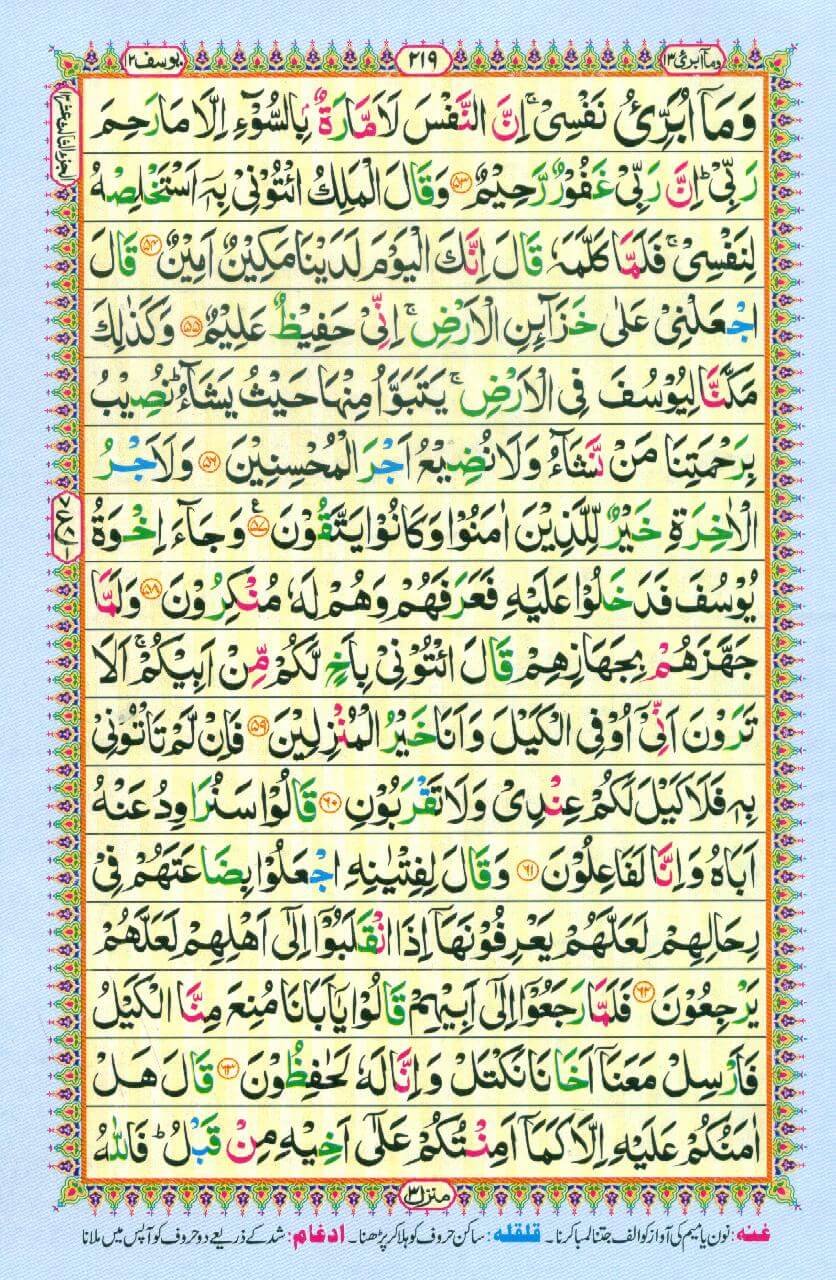 وما ابرئ ۱۳
۲۱۹
یوسف ۱۲
وَمَآ اُبَرِّئُ نَفْسِیْ ۚ اِنَّ النَّفْسَ لَاَمَّارَةٌۢ بِالسُّوْٓءِ اِلَّا مَا رَحِمَ
رَبِّیْ ؕ اِنَّ رَبِّیْ غَفُوْرٌ رَّحِیْمٌ ﴿۵۳﴾ وَقَالَ الْمَلِكُ ائْتُوْنِیْ بِهٖۤ اَسْتَخْلِصْهُ
لِنَفْسِیْ ۚ فَلَمَّا كَلَّمَهٗ قَالَ اِنَّكَ الْیَوْمَ لَدَیْنَا مَكِیْنٌ اَمِیْنٌ ﴿۵۴﴾ قَالَ
اجْعَلْنِیْ عَلٰی خَزَآىِٕنِ الْاَرْضِ ۚ اِنِّیْ حَفِیْظٌ عَلِیْمٌ ﴿۵۵﴾ وَكَذٰلِكَ
مَكَّنَّا لِیُوْسُفَ فِی الْاَرْضِ ۚ یَتَبَوَّاُ مِنْهَا حَیْثُ یَشَآءُ ؕ نُصِیْبُ
بِرَحْمَتِنَا مَنْ نَّشَآءُ وَلَا نُضِیْعُ اَجْرَ الْمُحْسِنِیْنَ ﴿۵۶﴾ وَلَاَجْرُ
الْاٰخِرَةِ خَیْرٌ لِّلَّذِیْنَ اٰمَنُوْا وَكَانُوْا یَتَّقُوْنَ ﴿۵۷﴾ ع وَجَآءَ اِخْوَةُ
یُوْسُفَ فَدَخَلُوْا عَلَیْهِ فَعَرَفَهُمْ وَهُمْ لَهٗ مُنْكِرُوْنَ ﴿۵۸﴾ وَلَمَّا
جَهَّزَهُمْ بِجَهَازِهِمْ قَالَ ائْتُوْنِیْ بِاَخٍ لَّكُمْ مِّنْ اَبِیْكُمْ ۚ اَلَا
تَرَوْنَ اَنِّیْۤ اُوْفِی الْكَیْلَ وَاَنَا خَیْرُ الْمُنْزِلِیْنَ ﴿۵۹﴾ فَاِنْ لَّمْ تَاْتُوْنِیْ
بِهٖ فَلَا كَیْلَ لَكُمْ عِنْدِیْ وَلَا تَقْرَبُوْنِ ﴿۶۰﴾ قَالُوْا سَنُرَاوِدُ عَنْهُ
اَبَاهُ وَاِنَّا لَفَاعِلُوْنَ ﴿۶۱﴾ وَقَالَ لِفِتْیٰنِهِ اجْعَلُوْا بِضَاعَتَهُمْ فِیْ
رِحَالِهِمْ لَعَلَّهُمْ یَعْرِفُوْنَهَاۤ اِذَا انْقَلَبُوْۤا اِلٰۤی اَهْلِهِمْ لَعَلَّهُمْ
یَرْجِعُوْنَ ﴿۶۲﴾ فَلَمَّا رَجَعُوْۤا اِلٰۤی اَبِیْهِمْ قَالُوْا یٰۤاَبَانَا مُنِعَ مِنَّا الْكَیْلُ
فَاَرْسِلْ مَعَنَاۤ اَخَانَا نَكْتَلْ وَاِنَّا لَهٗ لَحٰفِظُوْنَ ﴿۶۳﴾ قَالَ هَلْ
اٰمَنُكُمْ عَلَیْهِ اِلَّا كَمَاۤ اَمِنْتُكُمْ عَلٰۤی اَخِیْهِ مِنْ قَبْلُ ؕ فَاللّٰهُ
منزل ۳
غنه: نون یا میم کی آواز کو الف جتنا لمبا کرنا۔ قلقله: ساکن حروف کو ہلا کر پڑھنا۔ ادغام: شد کے ذریعے دو حروف کو آپس میں ملانا